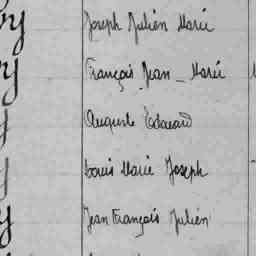 y Joseph Julien Marie
y François Jean _ Marie
y Auguste Edouard
y Louis Marie Joseph
y Jean François Julien